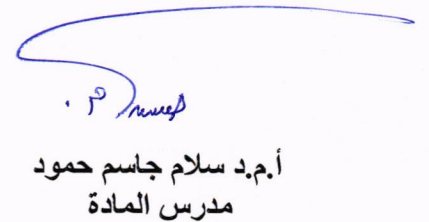 أ.م.د سلام جاسم حمود
مدرس المادة